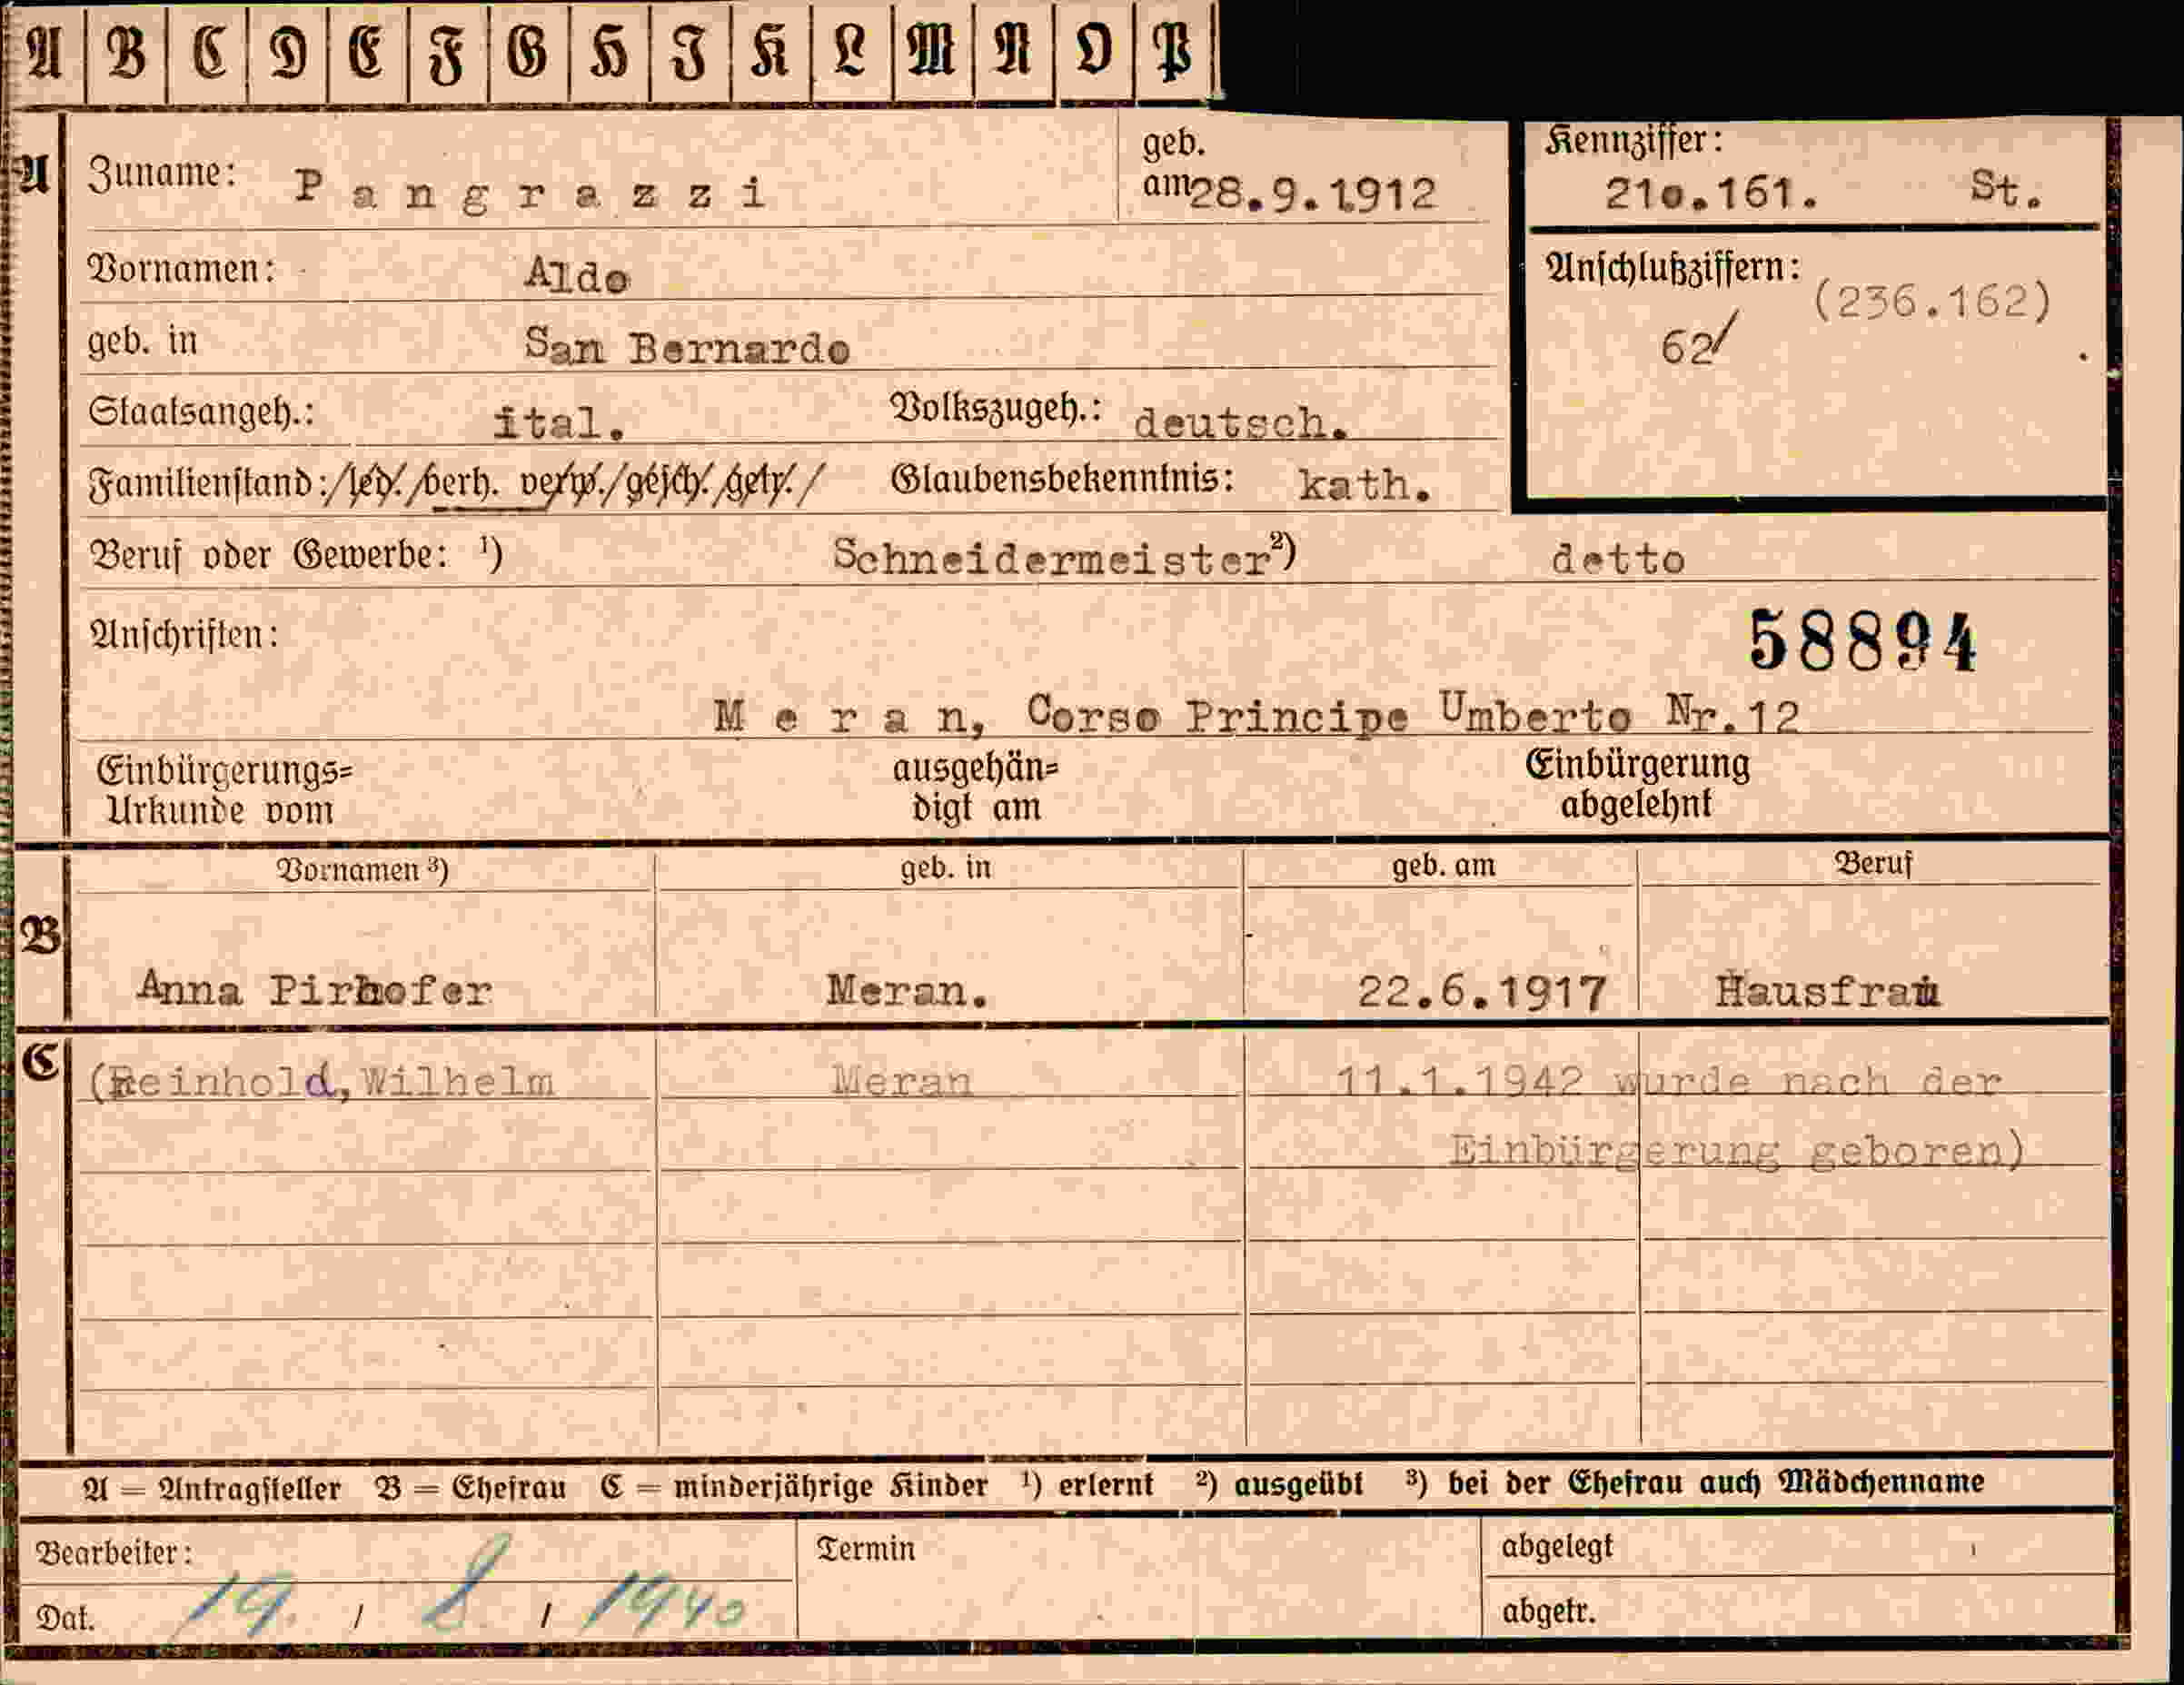 A B C D E F G H I K L M N O P
A Zuname: Pangrazzi geb. am 28.9.1912 Kennziffer: 210.161. St.
Vornamen: Aldo Anschlußziffern: (236.162)
geb. in San Bernardo 62/
Staatsangeh.: ital. Volkszugeh.: deutsch.
Familienstand: /led./verh. verw./gesch./getr./ Glaubensbekenntnis: kath.
Beruf oder Gewerbe: ¹) Schneidermeister ²) detto
Anschriften: 58894
Meran, Corso Principe Umberto Nr.12
Einbürgerungs= ausgehän= Einbürgerung
Urkunde vom digt am abgelehnt
Vornamen ³) geb. in geb. am Beruf
B Anna Pirhofer Meran. 22.6.1917 Hausfrau
C (Reinhold, Wilhelm Meran 11.1.1942 wurde nach der
Einbürgerung geboren)
A = Antragsteller B = Ehefrau C = minderjährige Kinder ¹) erlernt ²) ausgeübt ³) bei der Ehefrau auch Mädchenname
Bearbeiter: Termin abgelegt
Dat. 19. / 8 / 1940 abgetr.